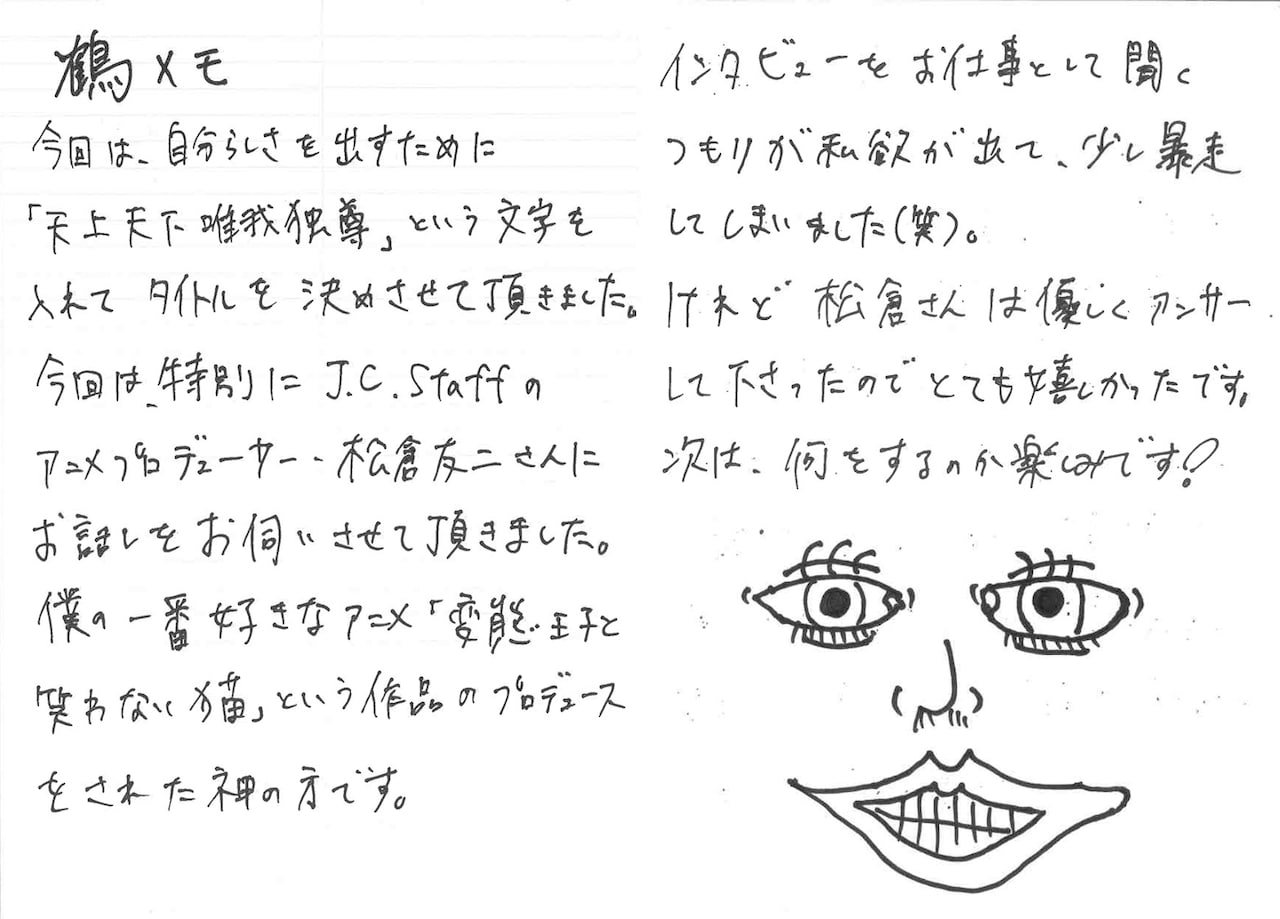 鶴メモ
今回は、自分らしさを出すために
「天上天下唯我独尊」という文字を
入れてタイトルを決めさせて頂きました。
今回は、特別にJ.C.Staffの
アニメプロデューサー・松倉友二さんに
お話しをお伺いさせて頂きました。
僕の一番好きなアニメ「変態王子と
笑わない猫」という作品のプロデュース
をされた神の方です。
インタビューをお仕事として聞く
つもりが私欲が出て、少し暴走
してしまいました(笑)。
けれど松倉さんは優しくアンサー
して下さったのでとても嬉しかったです。
次は、何をするのか楽しみです!